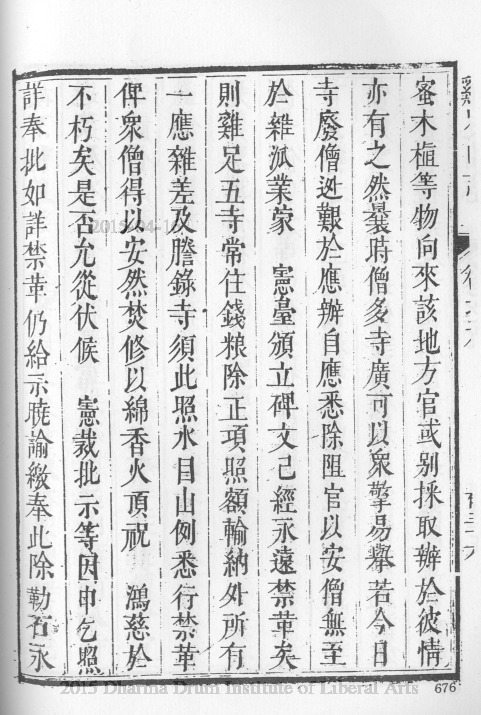 蜜木植等物向來該地方官或別採取辦於彼情
亦有之然曩時僧多寺廣可以衆擎易舉若今日
寺廢僧逃艱於應辦自應悉除阻官以安僧無至
於雜派業蒙　憲臺頒立碑文已經永遠禁革矣
則雞足五寺常住錢粮除正項照額輸納外所有
一應雜差及謄錄寺須此照水目山例悉行禁革
俾衆僧得以安然焚修以綿香火頂祝　鴻慈於
不朽矣是否允從伏候　憲裁批示等因申乞照
詳奉批如詳禁革仍給示曉諭繳奉此除勒石永
2015-04-1
2015 Dharma Drum Institute of Liberal Arts
676